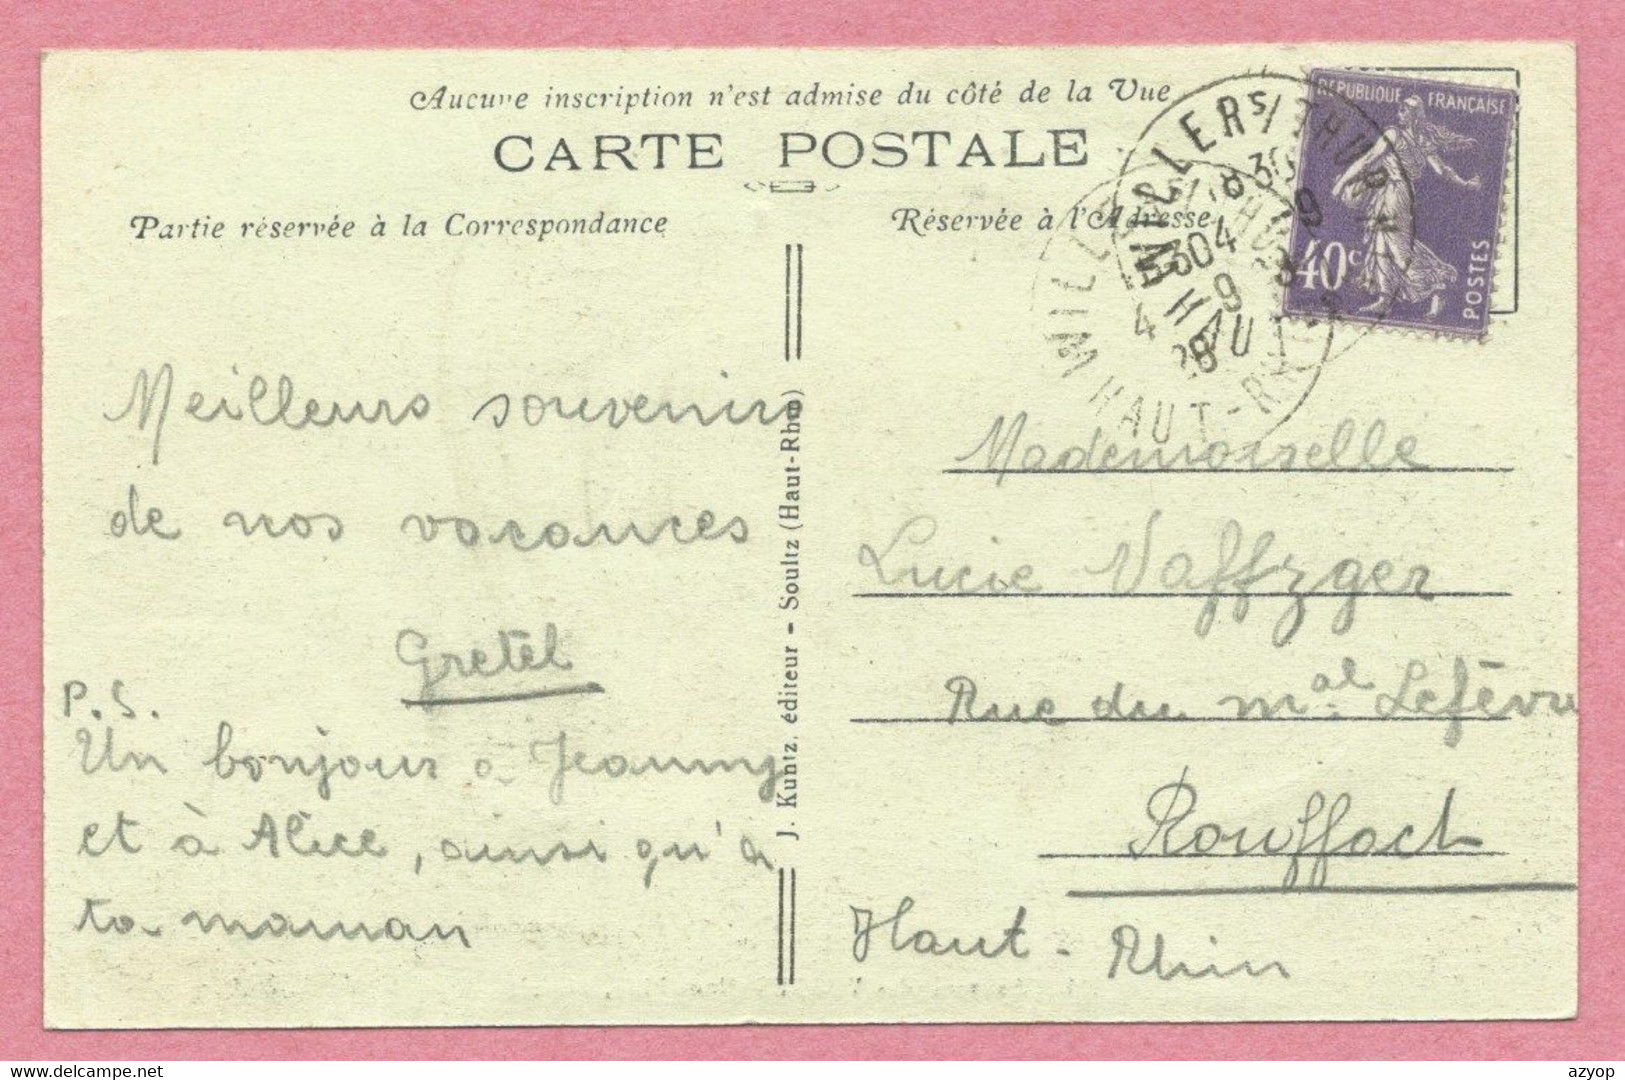 Aucune inscription n'est admise du côté de la Vue
CARTE POSTALE
Partie réservée à la Correspondance
Réservée à l'Adresse
RÉPUBLIQUE FRANÇAISE
40c
POSTES
WILLER S/THUR
HAUT-RHIN
Meilleurs souvenirs
de nos vacances
Gretel
P.S.
Un bonjour à Jeanny
et à Alice, ainsi qu'à
ta maman
J. Kuntz, éditeur - Soultz (Haut-Rhin)
Mademoiselle
Lucie Naffzger
Rue du mal Lefèvre
Rouffach
Haut-Rhin
delcampe.net
azyop